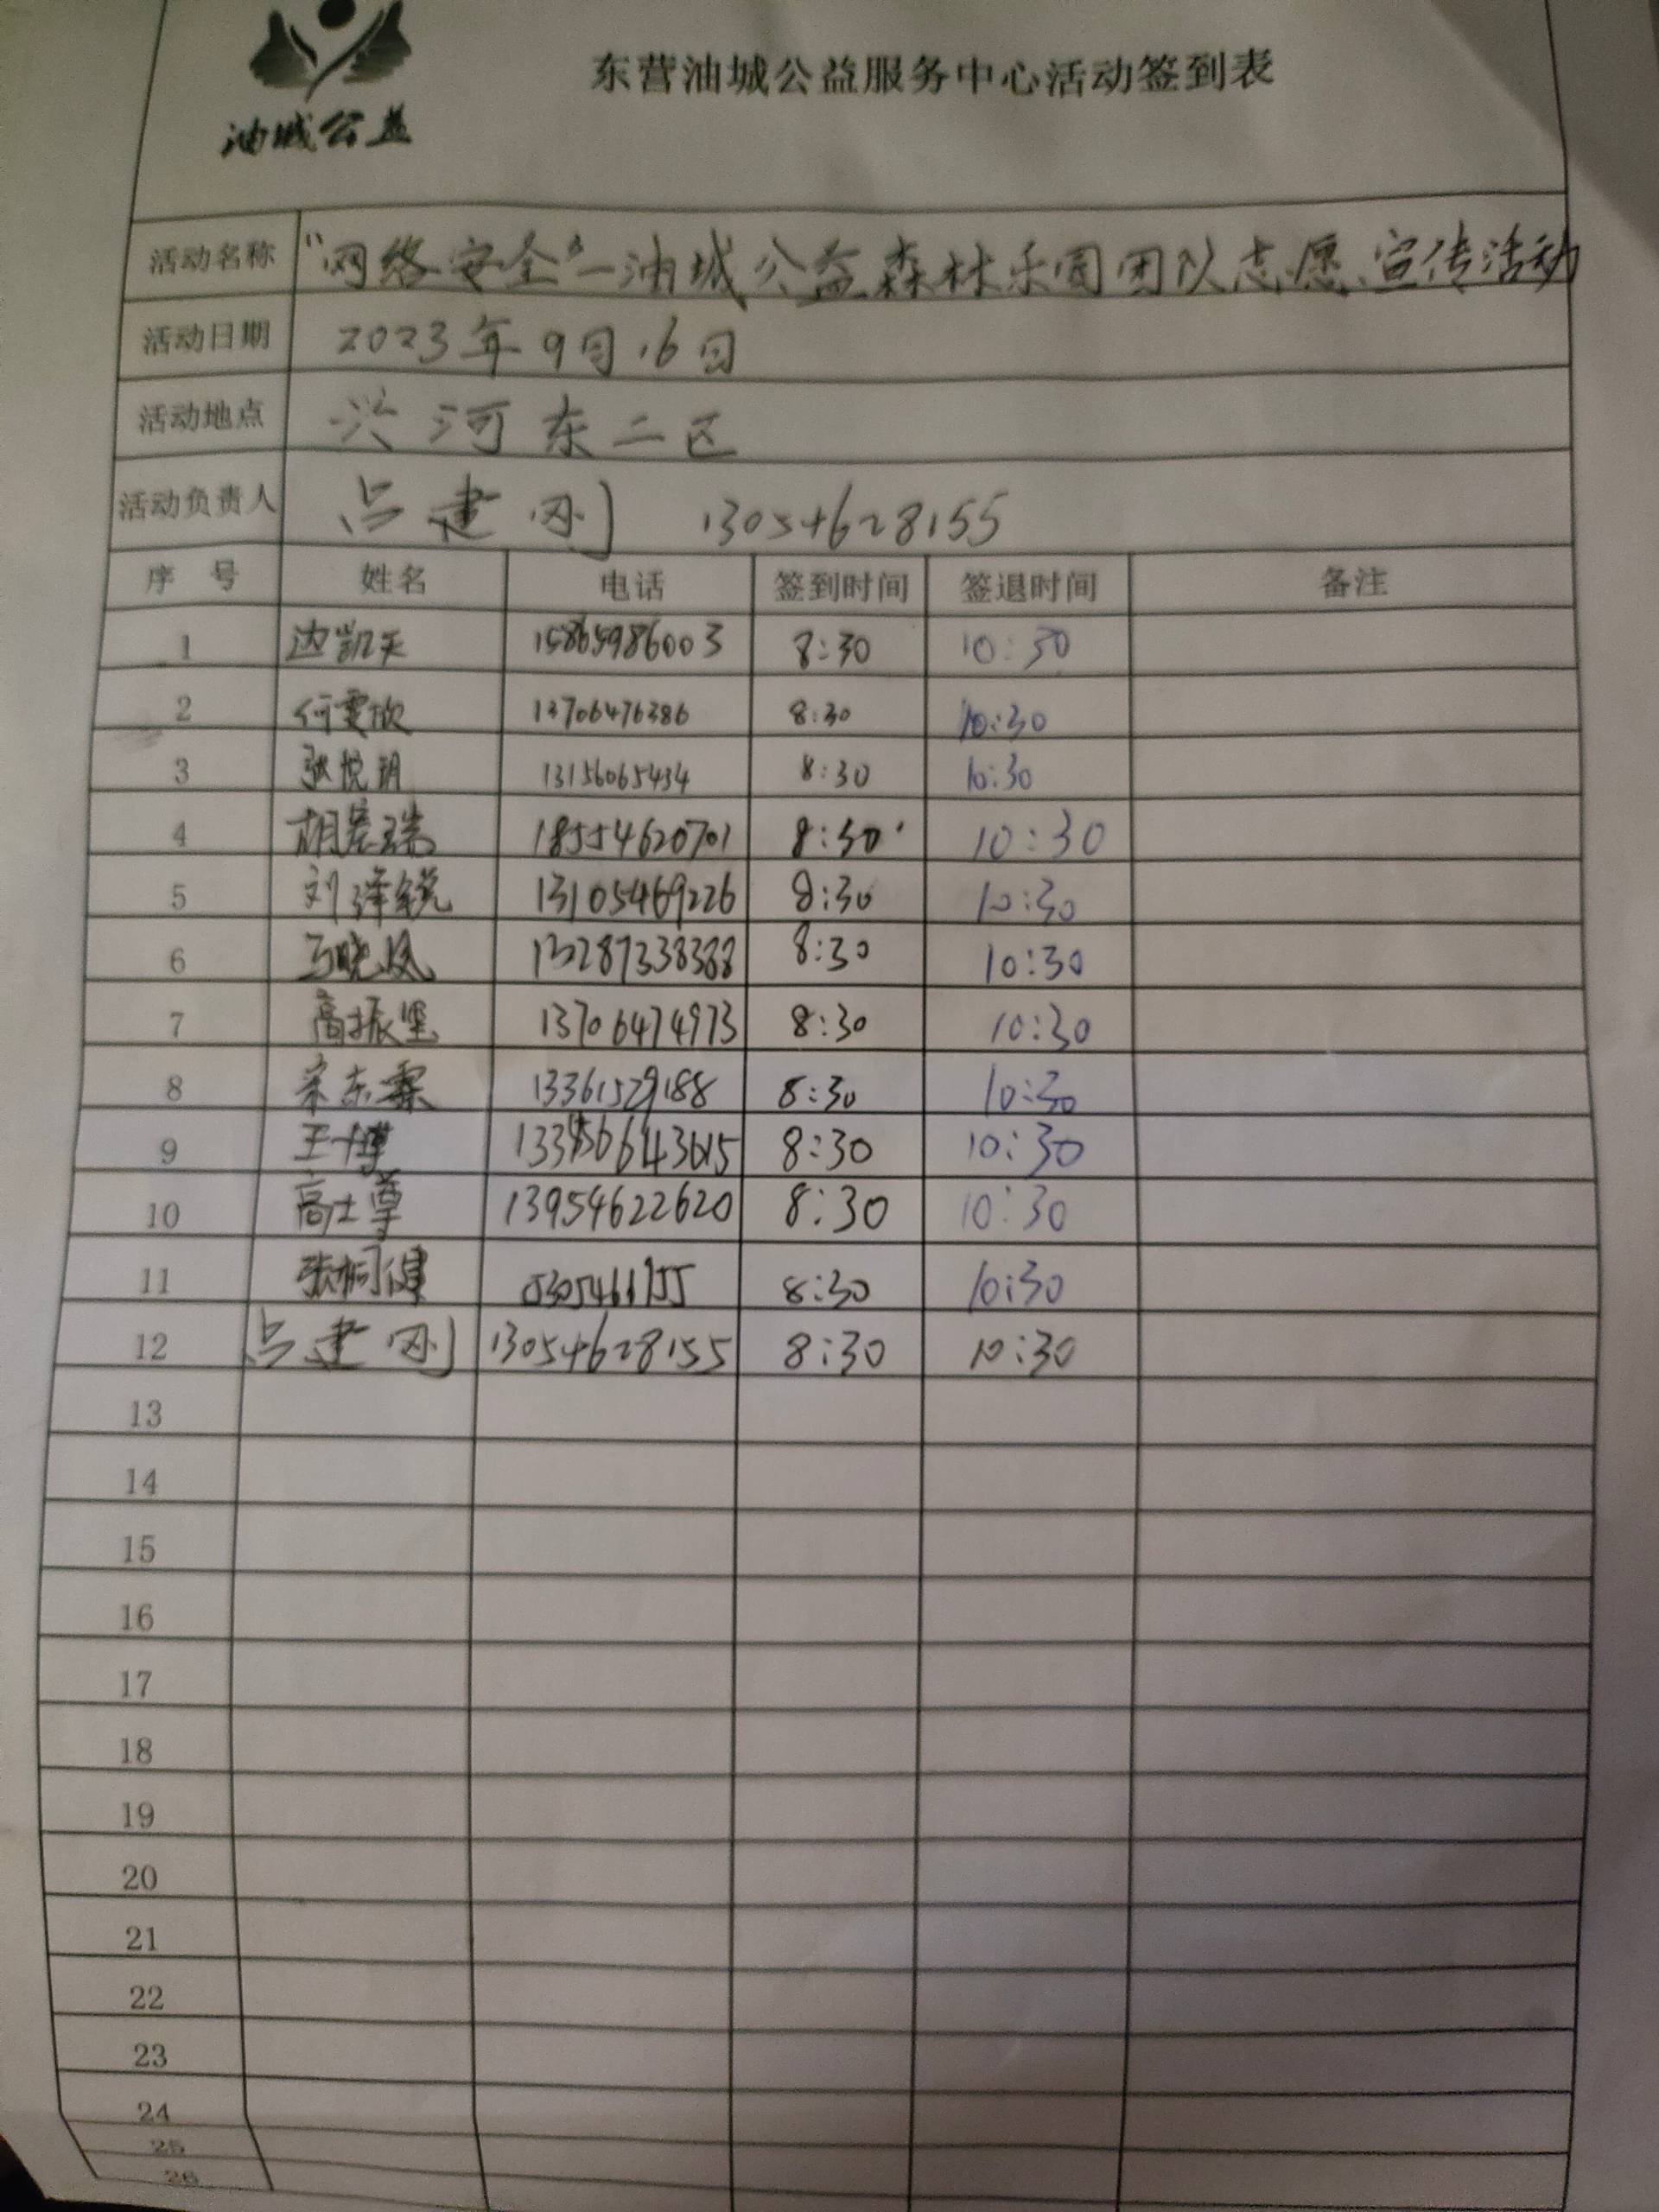 东营油城公益服务中心活动签到表
油城公益
活动名称 "网络安全"—油城公益森林乐园团队志愿宣传活动
活动日期 2023年9月16日
活动地点 兴河东二区
活动负责人 吕建刚 13054628155
序号 姓名 电话 签到时间 签退时间 备注
1 边凯天 15865986003 8:30 10:30
2 何雯欣 13706476386 8:30 10:30
3 张悦玥 13156065434 8:30 10:30
4 胡宸瑞 18554620701 8:30 10:30
5 刘泽锐 13105469226 8:30 10:30
6 马晓凤 13287338388 8:30 10:30
7 高振坚 13706474973 8:30 10:30
8 宋东霖 13361529188 8:30 10:30
9 王一博 8:30 10:30
10 高士尊 13954622620 8:30 10:30
11 张桐健 8:30 10:30
12 吕建刚 13054628155 8:30 10:30
13
14
15
16
17
18
19
20
21
22
23
24
25
26